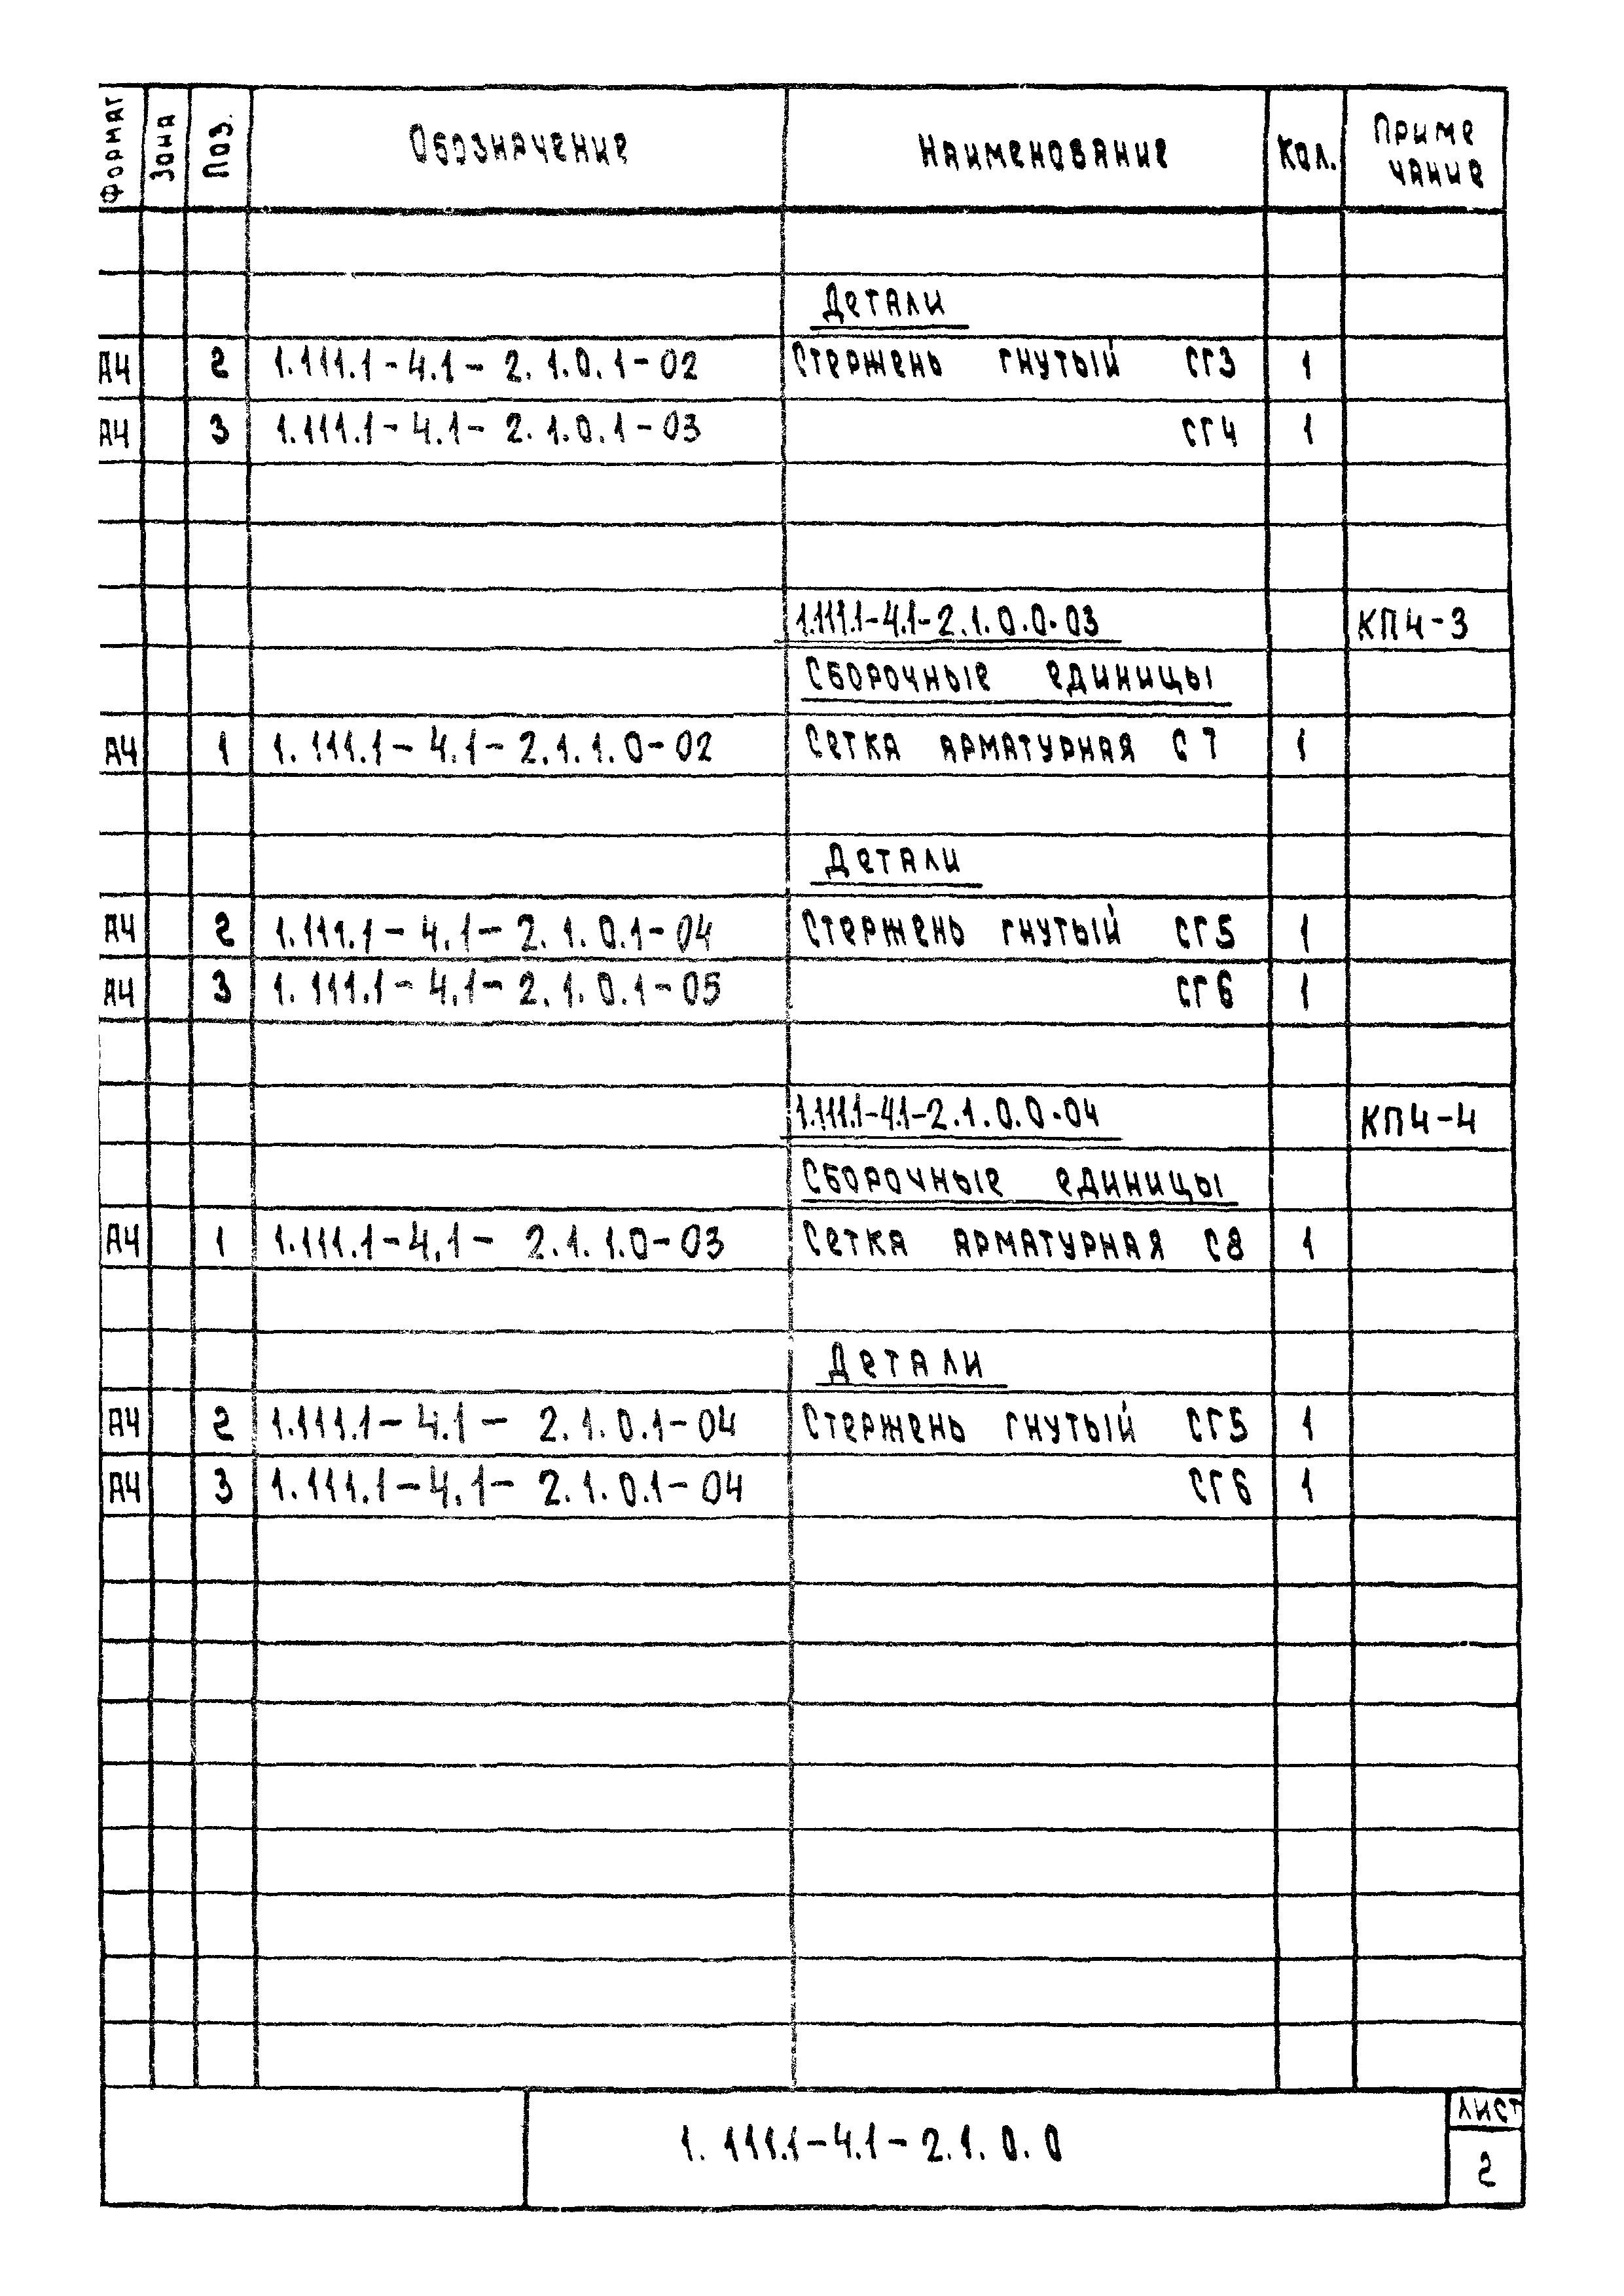 Формат Зона Поз. Обозначение Наименование Кол. Приме
чание
Детали
А4 2 1.111.1-4.1-2.1.0.1-02 Стержень гнутый СГ3 1
А4 3 1.111.1-4.1-2.1.0.1-03 СГ4 1
1.111.1-4.1-2.1.0.0-03 КП4-3
Сборочные единицы
А4 1 1.111.1-4.1-2.1.1.0-02 Сетка арматурная С7 1
Детали
А4 2 1.111.1-4.1-2.1.0.1-04 Стержень гнутый СГ5 1
А4 3 1.111.1-4.1-2.1.0.1-05 СГ6 1
1.111.1-4.1-2.1.0.0-04 КП4-4
Сборочные единицы
А4 1 1.111.1-4.1-2.1.1.0-03 Сетка арматурная С8 1
Детали
А4 2 1.111.1-4.1-2.1.0.1-04 Стержень гнутый СГ5 1
А4 3 1.111.1-4.1-2.1.0.1-04 СГ6 1
1.111.1-4.1-2.1.0.0
Лист
2